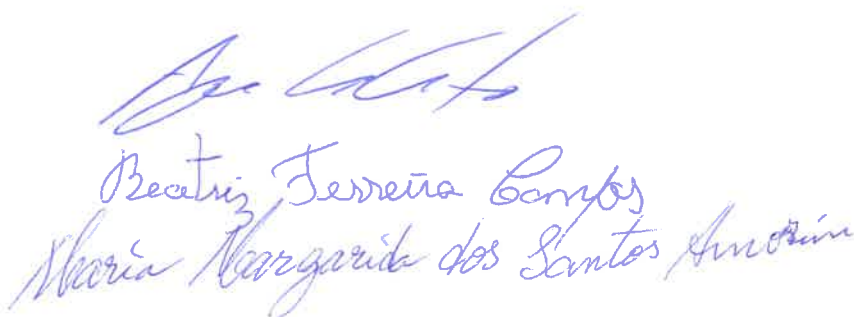 Beatriz Ferreira Campos
Maria Margarida dos Santos Amorim